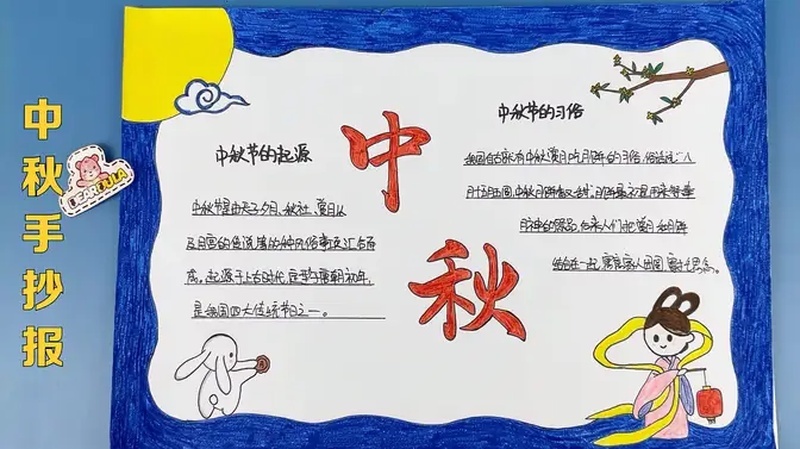 中秋手抄报
中秋节的起源
中秋节是由天子夕月、秋社、赏月以
及月宫的传说等的种风俗事项汇合而
成。起源于上古时代,定型于唐朝初年,
是我国四大传统节日之一。
中
秋
中秋节的习俗
我国自古就有中秋赏月吃月饼的习俗,俗话说:“八
月十五月圆,中秋月饼香又甜”,月饼最初是用来祭奉
月神的祭品,后来人们把赏月和月饼
结合在一起,寓意家人团圆,寄托思念。